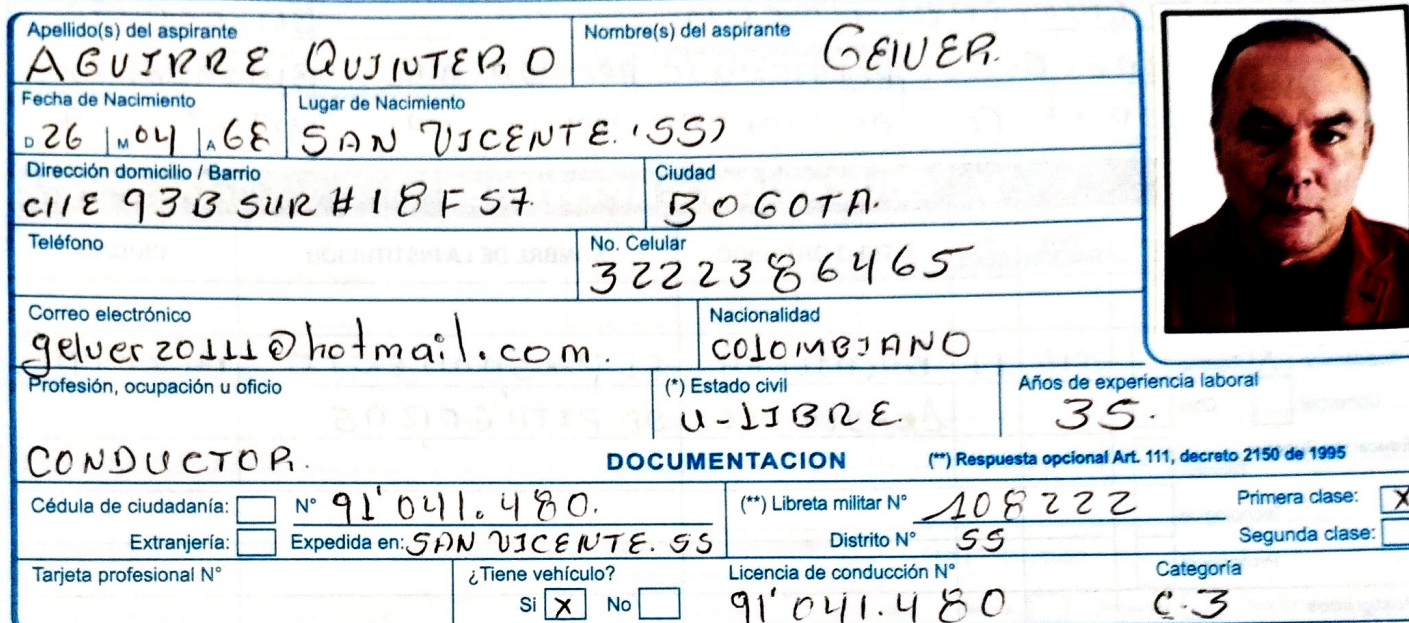 Apellido(s) del aspirante
AGUIRRE QUINTERO
Nombre(s) del aspirante
GEIVER.
Fecha de Nacimiento
D 26 M 04 A 68
Lugar de Nacimiento
SAN VICENTE. (SS)
Dirección domicilio / Barrio
Clle 93B SUR # 18F 57
Ciudad
BOGOTA.
Teléfono
No. Celular
3222386465
Correo electrónico
gelver20111@hotmail.com.
Nacionalidad
COLOMBIANO
Profesión, ocupación u oficio
CONDUCTOR.
(*) Estado civil
U-LIBRE.
Años de experiencia laboral
35.
DOCUMENTACION
(**) Respuesta opcional Art. 111, decreto 2150 de 1995
Cédula de ciudadanía:
N° 91'041.480.
Extranjería:
Expedida en: SAN VICENTE. SS
(**) Libreta militar N° 108222
Primera clase: X
Distrito N° SS
Segunda clase:
Tarjeta profesional N°
¿Tiene vehículo?
Si X No
Licencia de conducción N°
91'041.480
Categoría
C.3